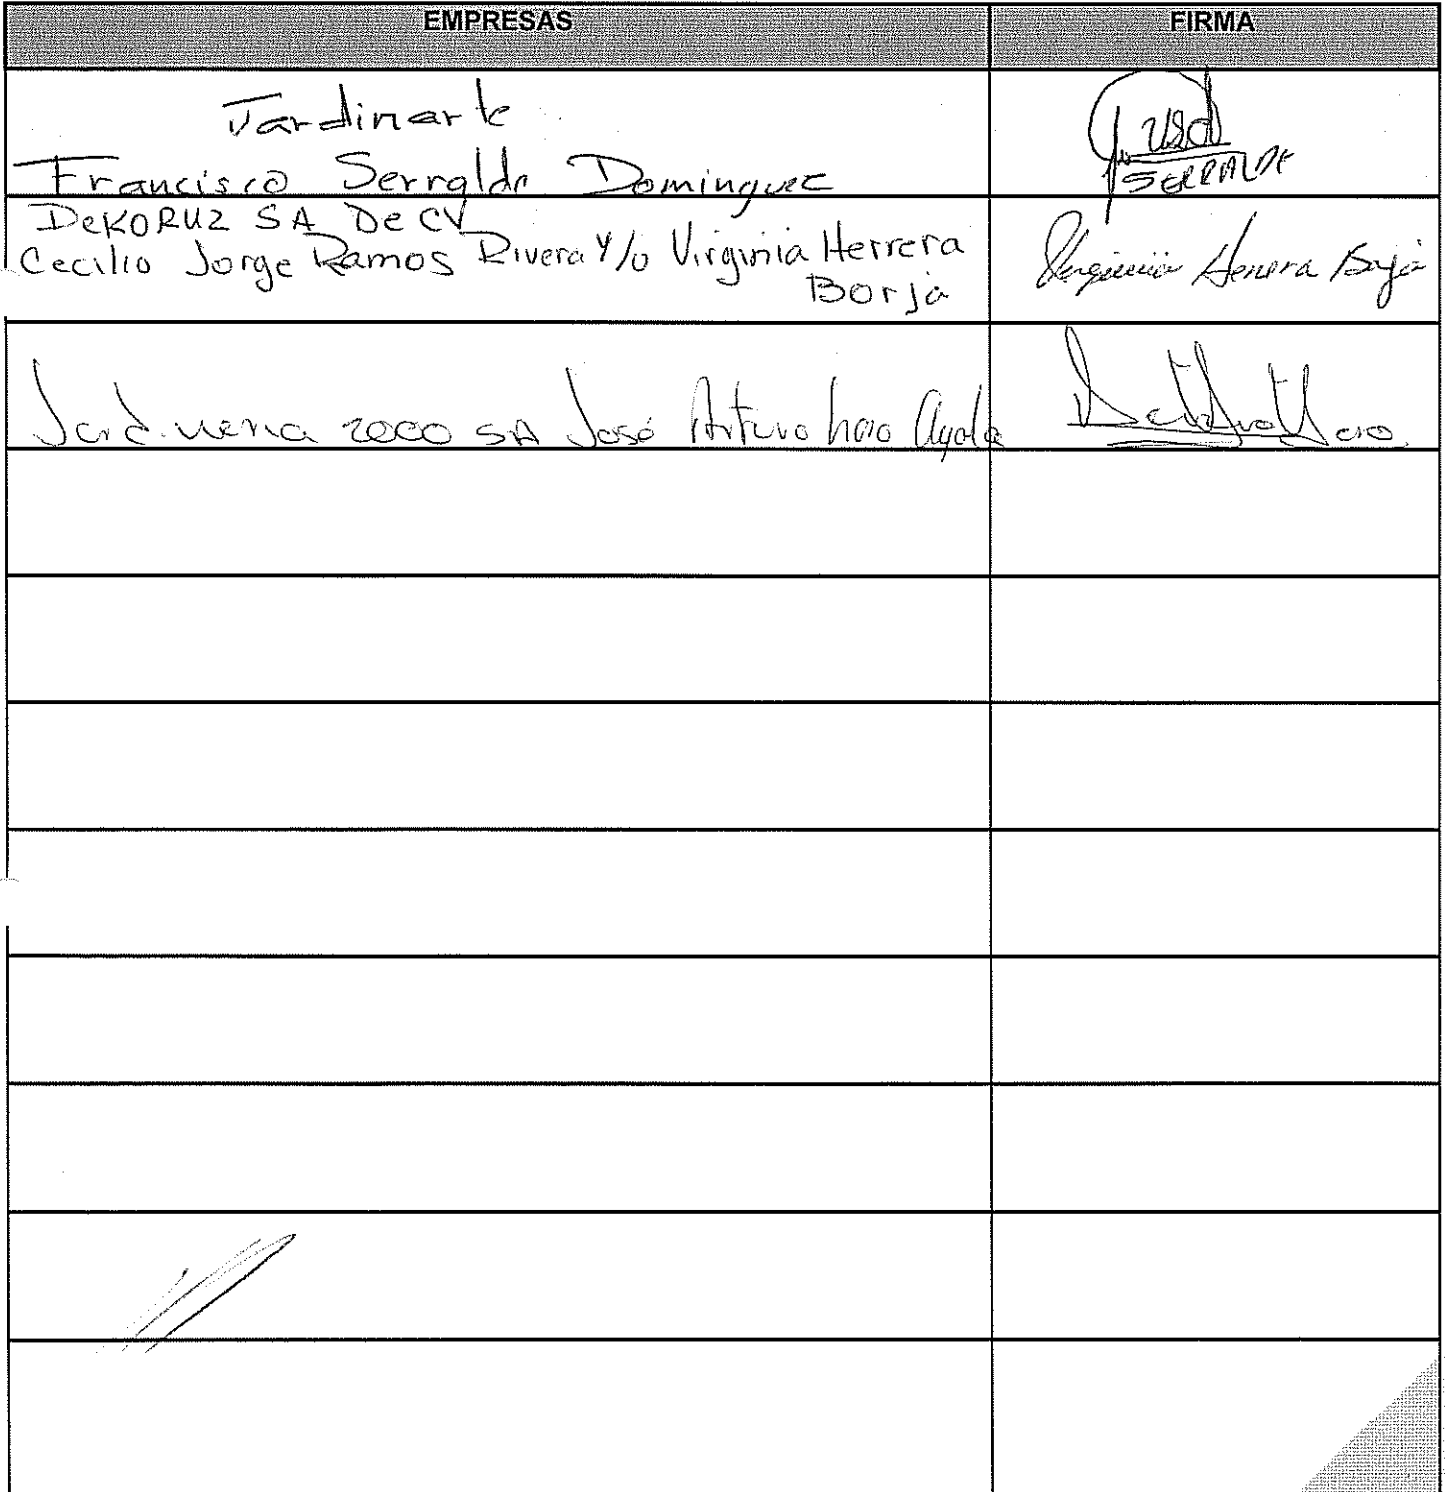 EMPRESAS FIRMA
Jardinarte
Francisco Serralde Dominguez
SERRALDE
DeKORUZ SA De CV
Cecilio Jorge Ramos Rivera Y/o Virginia Herrera
Borja
Virginia Herrera Borja
2000 SA José Arturo Ayala